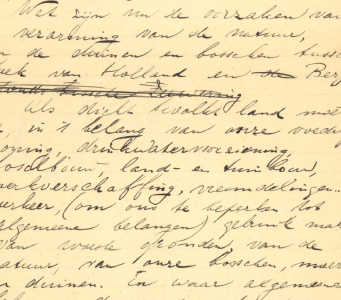 Wat zijn nu de oorzaken van
verarming van de natuur,
de duinen en bosschen tussch
hoek van Holland en de Berg
Als dicht bevolkt land moet
in 't belang van onze voedse
drinkwatervoorziening,
boschbouw-, land- en tuinbouw,
werkverschaffing, vreemdelingen-
verkeer, (om ons te beperken tot
algemeene belangen) gebruik mak
van woeste gronden, van de
natuur, van onze bosschen, moer
en duinen. En waar algemeene